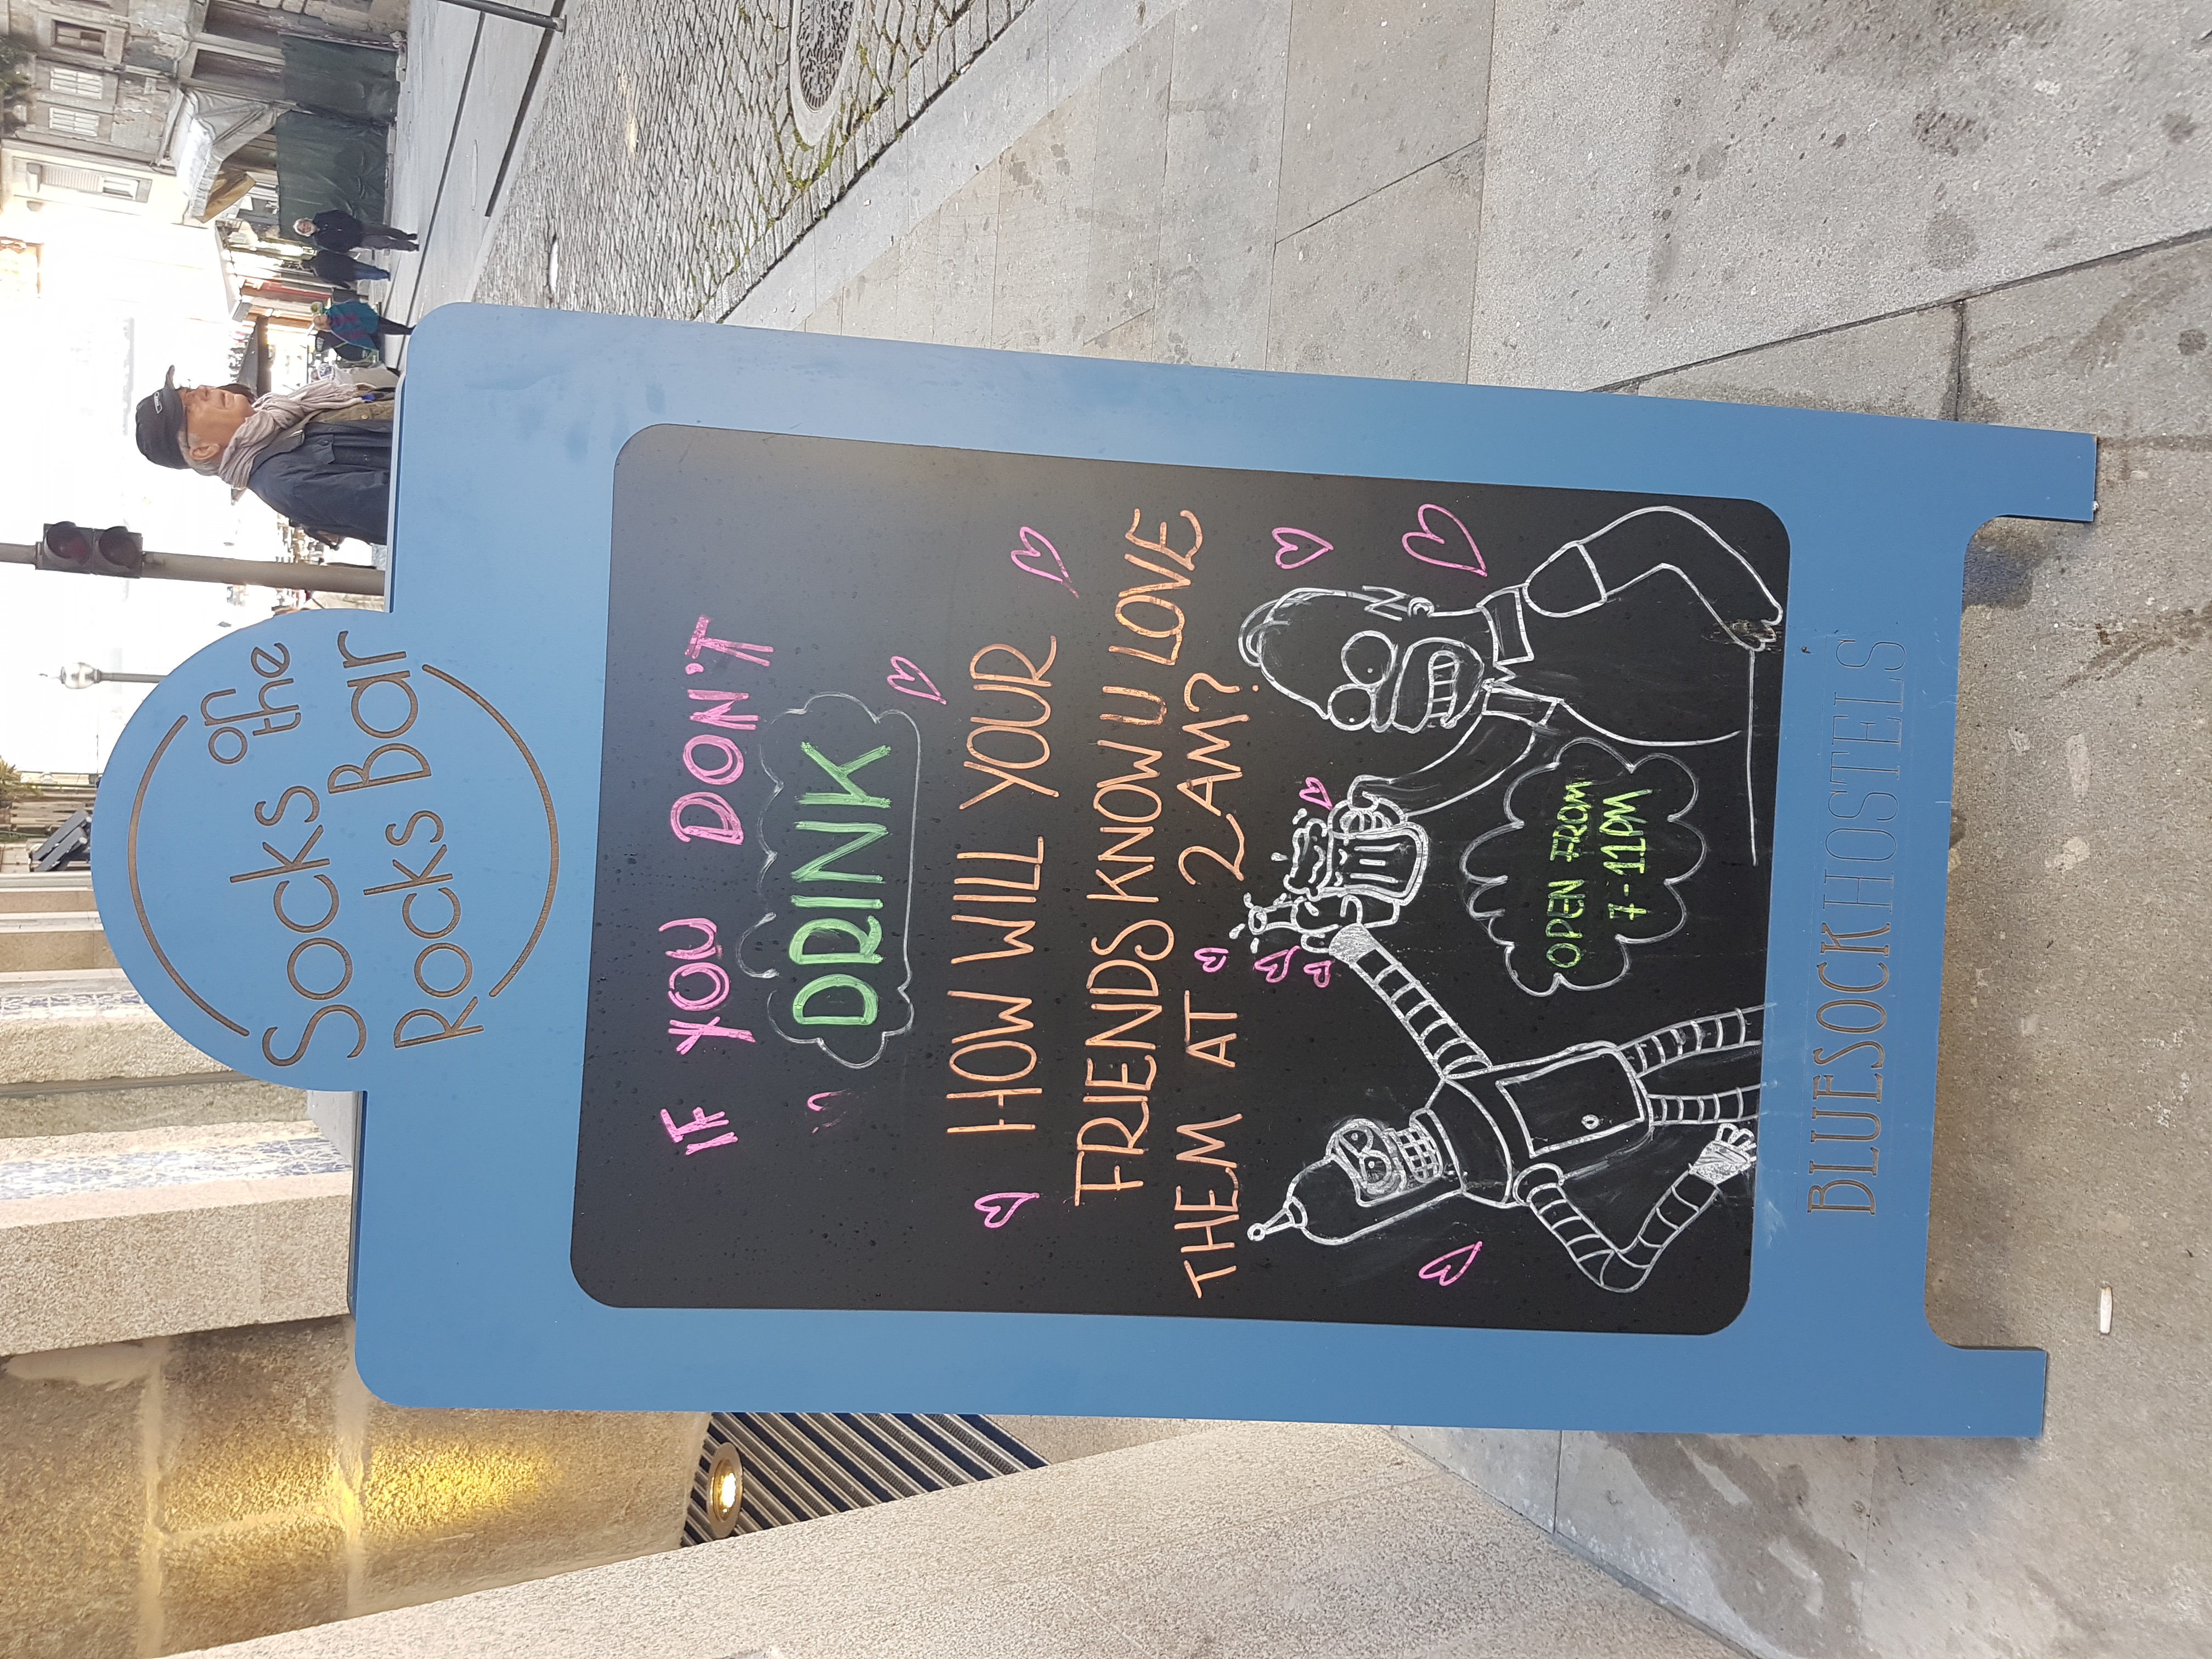 Socks on the
Rocks Bar
IF YOU DON'T
DRINK
HOW WILL YOUR
FRIENDS KNOW U LOVE
THEM AT 2AM?
OPEN FROM
7-11PM
BLUESOCKHOSTELS